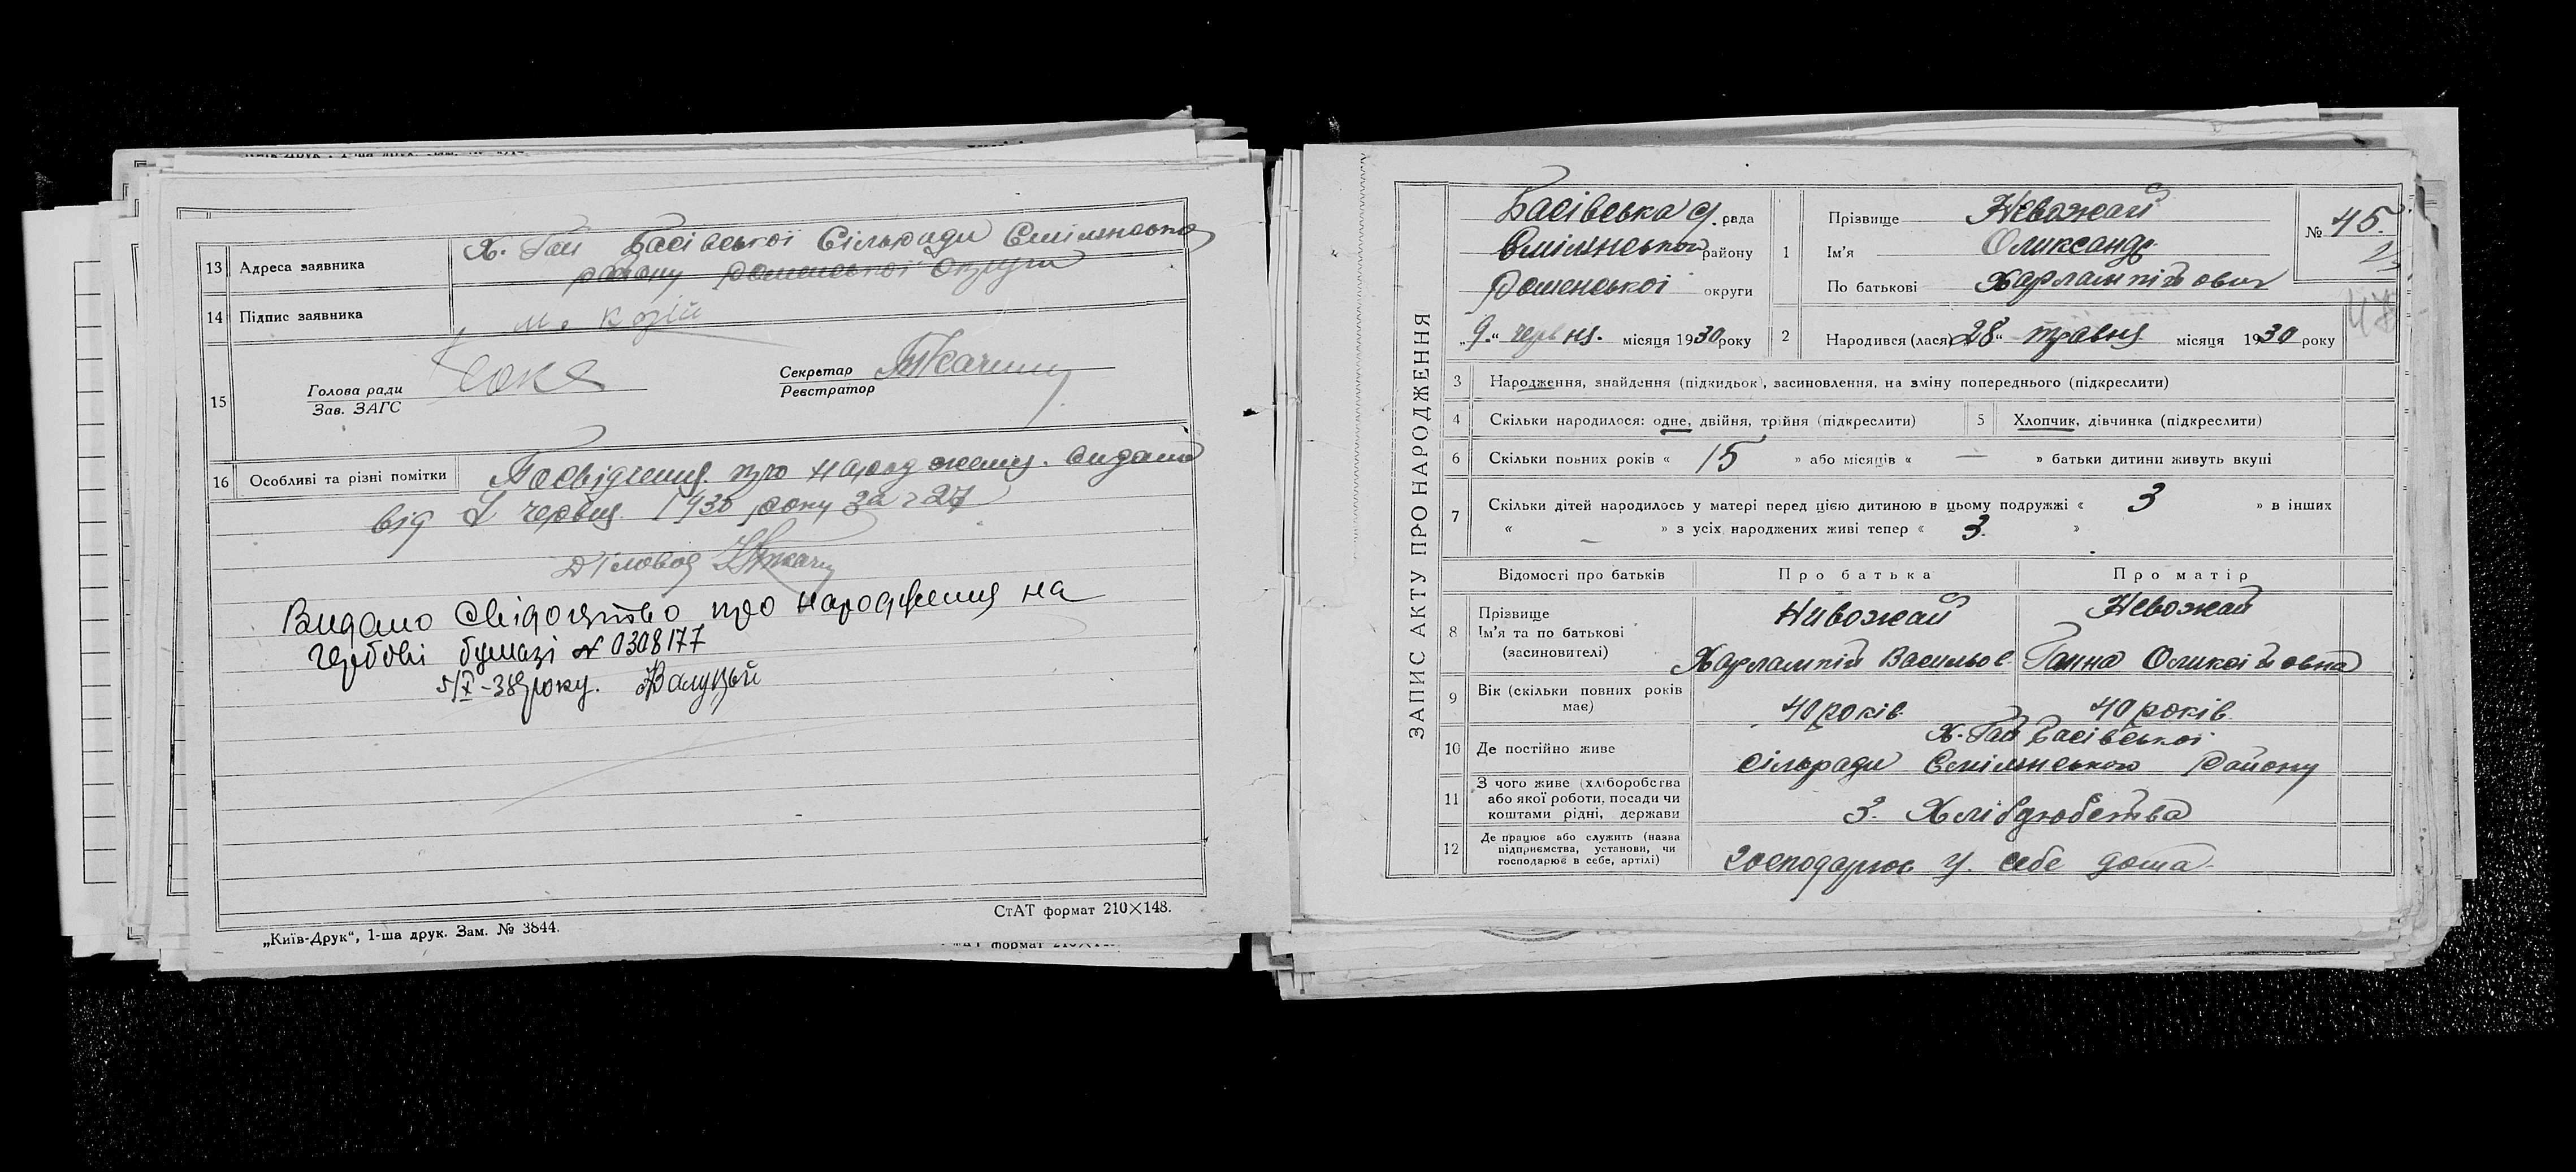 13 Адреса заявника Х. Гай Басівської Сільради Смілянсько
району Роменської Округи
14 Підпис заявника м. Козій
15 Голова ради
Зав. ЗАГС
Секретар
Реєстратор
16 Особливі та різні помітки Посвідчення про народження. видано
від червня 1930 року за 27
Діловод
Видано свідоцтво про народження на
гербові бумазі № 0308177
5/X-38 року.
СтАТ формат 210×148.
„Київ-Друк“, 1-ша друк. Зам. № 3844.
ЗАПИС АКТУ ПРО НАРОДЖЕННЯ
Басівська С. рада
Смілянського району
Роменської округи
„9“ червня. місяця 1930 року
1 Прізвище Невожай
Ім'я Олександр
По батькові Харлампійович
№ 45.
2 Народився (лася) „28“ травня місяця 1930 року
3 Народження, знайдення (підкидьок), засиновлення, на зміну попереднього (підкреслити)
4 Скільки народилося: одне, двійня, трійня (підкреслити) 5 Хлопчик, дівчинка (підкреслити)
6 Скільки повних років « 15 » або місяців « — » батьки дитини живуть вкупі
7 Скільки дітей народилось у матері перед цією дитиною в цьому подружжі « 3 » в інших
« — » з усіх народжених живі тепер « 3. »
Відомості про батьків Про батька Про матір
8 Прізвище
Ім'я та по батькові
(засновителі)
Нивожай Невожай
Харлампій Васильов. Ганна Оликсійовна
9 Вік (скільки повних років має) 40 років. 40 років.
10 Де постійно живе Х. Гай Басівської
сільради Смілянського району
11 З чого живе (хліборобства
або якої роботи, посади чи
коштами рідні, держави
З. Хлібдробства
12 Де працює або служить (назва
підприємства, установи, чи
господарює в себе, артілі)
господарює У. себе дома